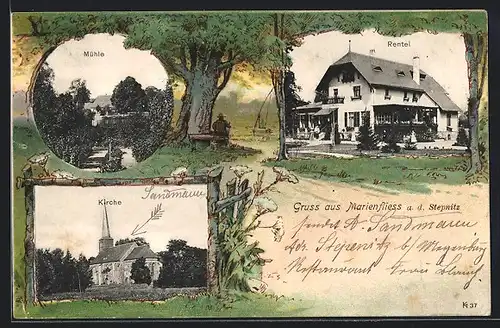 Mühle
Rentei
Kirche
Sandmann
Gruss aus Marienfliess a. d. Stepnitz
A. Sandmann
Stepenitz b/ Meyenburg
Restaurant
K 37